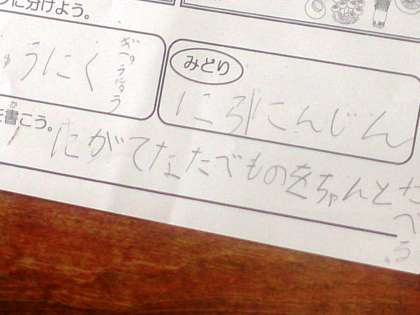 に分けよう。
ゅうにく
ぎゅうにゅう
みどり
にら にんじん
を書こう。
にがてなたべものをちゃんとたべう。